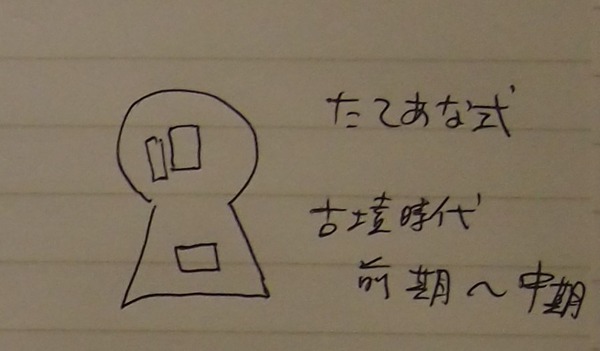 たてあな式
古墳時代
前期〜中期